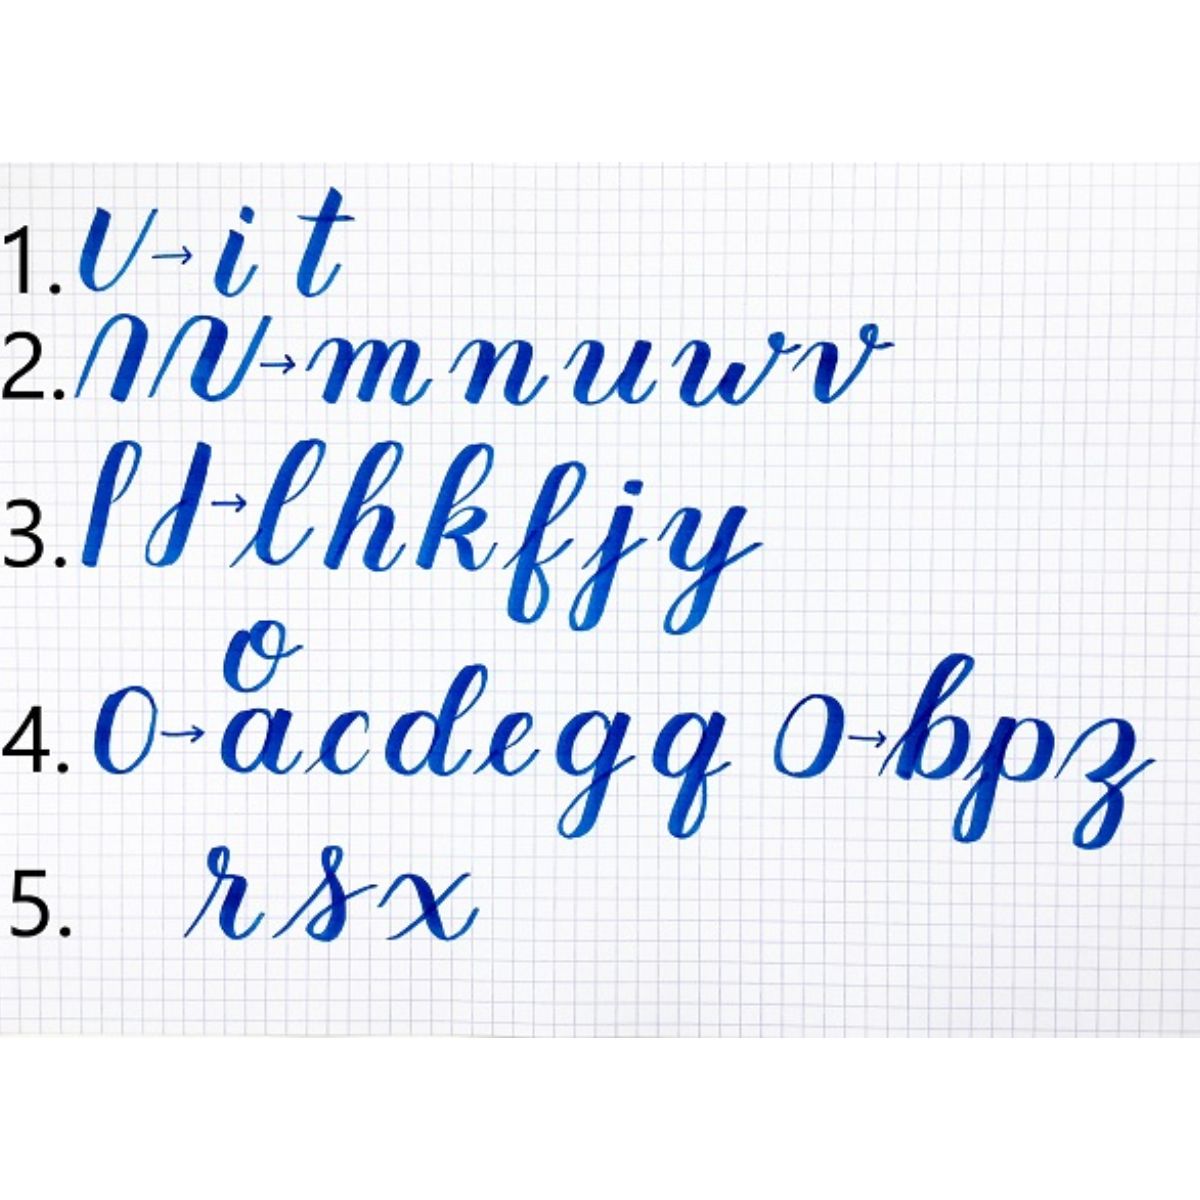 1. U → i t
2. n v → m n u w v
3. l J → l h k f j y
o
4. O → a c d e g q O → b p z
5. r s x